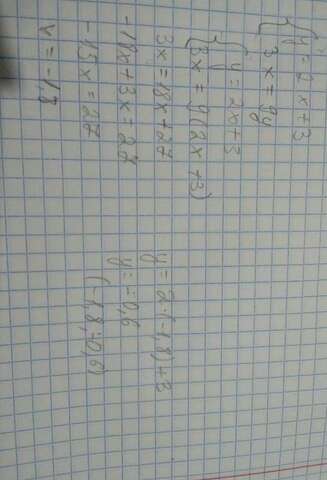 { y = 2x + 3
3x = 9y
{ y = 2x + 3
3x = 9(2x + 3)
3x = 18x + 27
-18x + 3x = 27
-15x = 27
x = -1,8
y = 2·(-1,8) + 3
y = -0,6
(-1,8; -0,6)